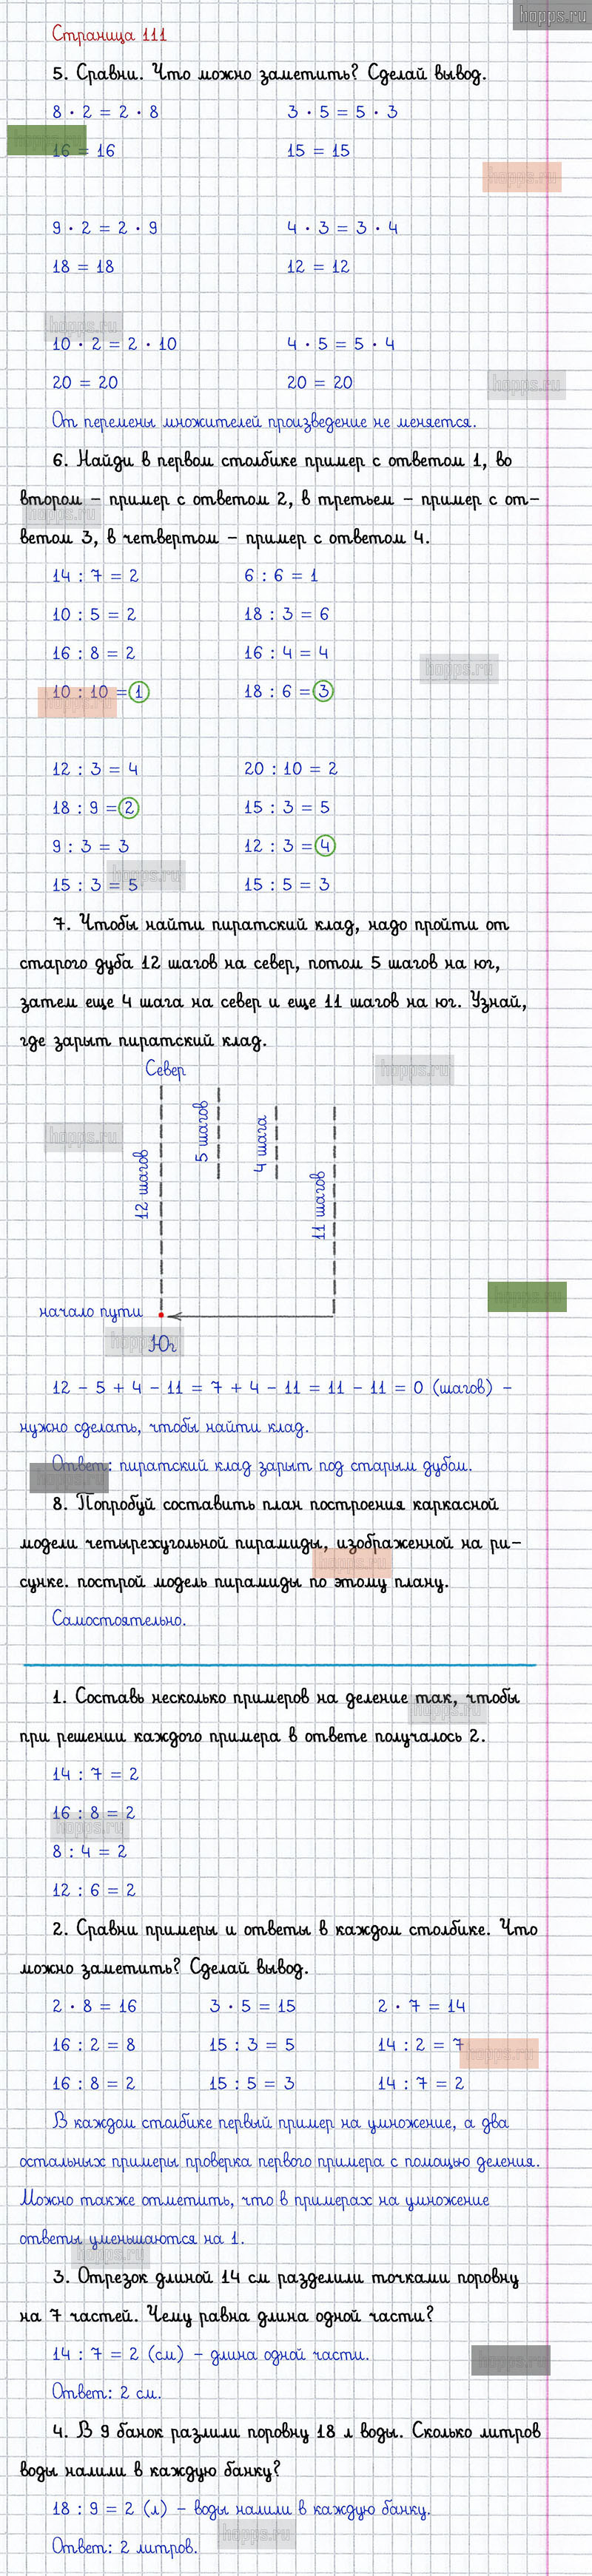 hopps.ru
Страница 111
5. Сравни. Что можно заметить? Сделай вывод.
8 · 2 = 2 · 8 3 · 5 = 5 · 3
16 = 16 15 = 15
hopps.ru
9 · 2 = 2 · 9 4 · 3 = 3 · 4
18 = 18 12 = 12
hopps.ru
10 · 2 = 2 · 10 4 · 5 = 5 · 4
20 = 20 20 = 20
hopps.ru
От перемены множителей произведение не меняется.
6. Найди в первом столбике пример с ответом 1, во
втором – пример с ответом 2, в третьем – пример с от-
hopps.ru
ветом 3, в четвертом – пример с ответом 4.
14 : 7 = 2 6 : 6 = 1
10 : 5 = 2 18 : 3 = 6
16 : 8 = 2 16 : 4 = 4
hopps.ru
10 : 10 = 1 18 : 6 = 3
12 : 3 = 4 20 : 10 = 2
18 : 9 = 2 15 : 3 = 5
9 : 3 = 3 12 : 3 = 4
hopps.ru
15 : 3 = 5 15 : 5 = 3
7. Чтобы найти пиратский клад, надо пройти от
старого дуба 12 шагов на север, потом 5 шагов на юг,
затем еще 4 шага на север и еще 11 шагов на юг. Узнай,
где зарыт пиратский клад.
Север
hopps.ru
hopps.ru
12 шагов
5 шагов
4 шага
11 шагов
hopps.ru
начало пути
hopps.ru
Юг
12 – 5 + 4 – 11 = 7 + 4 – 11 = 11 – 11 = 0 (шагов) –
нужно сделать, чтобы найти клад.
Ответ: пиратский клад зарыт под старым дубом.
8. Попробуй составить план построения каркасной
модели четырехугольной пирамиды, изображенной на ри-
hopps.ru
сунке. построй модель пирамиды по этому плану.
Самостоятельно.
1. Составь несколько примеров на деление так, чтобы
hopps.ru
при решении каждого примера в ответе получалось 2.
14 : 7 = 2
16 : 8 = 2
hopps.ru
8 : 4 = 2
12 : 6 = 2
2. Сравни примеры и ответы в каждом столбике. Что
можно заметить? Сделай вывод.
2 · 8 = 16 3 · 5 = 15 2 · 7 = 14
16 : 2 = 8 15 : 3 = 5 14 : 2 = 7
hopps.ru
16 : 8 = 2 15 : 5 = 3 14 : 7 = 2
В каждом столбике первый пример на умножение, а два
остальных примеры проверка первого примера с помощью деления.
Можно также отметить, что в примерах на умножение
ответы уменьшаются на 1.
hopps.ru
3. Отрезок длиной 14 см разделили точками поровну
на 7 частей. Чему равна длина одной части?
14 : 7 = 2 (см) – длина одной части.
hopps.ru
Ответ: 2 см.
4. В 9 банок разлили поровну 18 л воды. Сколько литров
воды налили в каждую банку?
18 : 9 = 2 (л) – воды налили в каждую банку.
hopps.ru
Ответ: 2 литров.